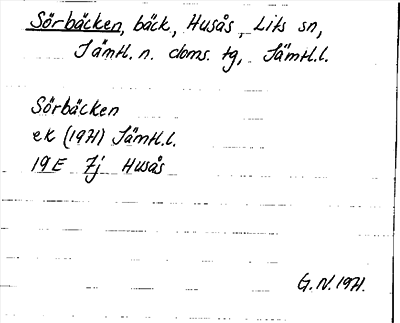 Sörbäcken, bäck, Husås, Lits sn,
Jämtl. n. doms. tg, Jämtl.l.
Sörbäcken
ek (1971) Jämtl.l.
19E 7j Husås
G.N. 1971.